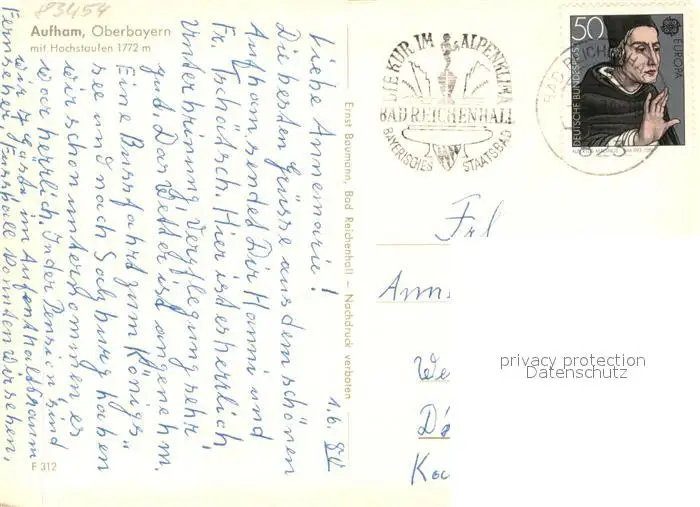 83454
Aufham, Oberbayern
mit Hochstaufen 1772 m
1.6.80
Liebe Annemarie!
Die besten Grüsse aus dem schönen
Aufham sendet Dir Hanni und
Fr. Tschötsch. Hier ist es herrlich
Unterbrinnung, Verpflegung sehr
gut. Das Wetter ist angenehm.
Eine Bussfahrt zum Königs
see und nach Salzburg haben
wir schon unternommen es
war herrlich. In der Pension sind
wir 7 Gäste im Aufenthaltsraum
Fernseher Fussball konnten wir sehn.
F 312
Ernst Baumann, Bad Reichenhall — Nachdruck verboten
DIE KUR IM ALPENKLIMA
BAD REICHENHALL
BAYERISCHES STAATSBAD
BAD REICHENHALL
50
EUROPA
DEUTSCHE BUNDESPOST
Frl
Ann
We
Dö
Koc
privacy protection
Datenschutz